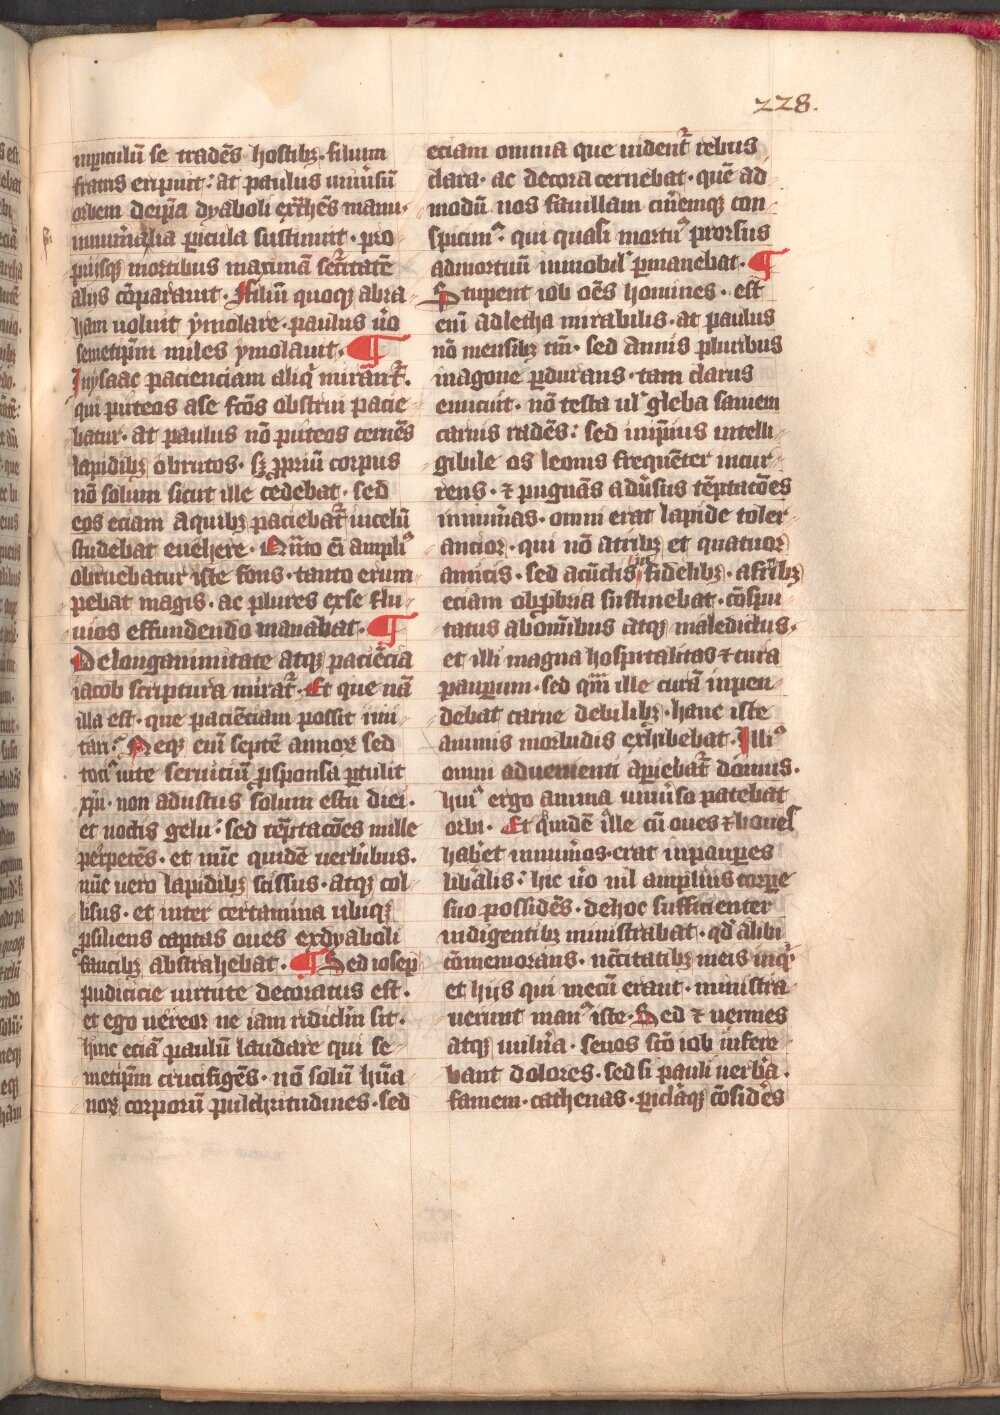 228.
inp̄iculū se tradēs hostibꝫ · filium
fratris eripuit : at paulus univ̾sū
orbem deip̄a dyaboli ext̾hēs manu ·
innum̾alia ꝑicula sustinuit · pro
priisqꝫ mortibus maximā sec̾ritatē
aliis cōparavit · Filiū quoqꝫ abra
ham uoluit ymolare · paulus u̾o
semetip̄m miles ymolauit · ¶
In ysaac pacienciam aliq̾ mirant᷑ .
qui puteos a se fc̄os obstrui pacie
batur · at paulus nō puteos cernēs
lapidibꝫ obrutos · sꝫ ꝓpriū corpus
nō solum sicut ille cedebat · sed
eos eciam a quibꝫ paciebat᷑ in celū
studebat euehere · Qu̾to eī ampliꝰ
obruebatur iste fons · tanto erum
pebat magis · ac plures ex se flu
uios effundendo manabat · ¶
De longanimitate atqꝫ paciēcia
iacob scriptura mirat᷑ · Et que nā
illa est · que paciēciam possit imi
tari : Neqꝫ enī septē annoꝝ sed
tociꝰ uite seruiciū ꝓ sponsa ꝑtulit
xp̄i · non adustus solum estu diei ·
et noctis gelu : sed tēptacōes mille
perpetēs · et nūc quidē uerb̾ibus ·
nūc uero lapidibꝫ scissus · atqꝫ col
lisus · et inter certamina ubiqꝫ
ꝓsiliens captas oues ex dyaboli
faucibꝫ abstrahebat · ¶ Sed iosep
pudicicie uirtute decoratus est ·
et ego uereor ne iam ridicl̄m sit ·
hinc eciā paulū laudare qui se
metip̄m crucifigēs · nō solū hūa
noꝝ corporū pulchritudines · sed
eciam omnia que uident᷑ rebus
clara · ac decora cernebat · quē ad
modū nos fauillam cin̾emqꝫ con
spicimꝰ · qui quasi mortuꝰ prorsus
ad mortuū inmobil᷒ ꝑmanebat · ¶
Stupent iob oēs homines · est
enī adletha mirabilis · at paulus
nō mensibꝫ tm̄ · sed annis pluribus
in agone ꝑdurans · tam clarus
enicuit · nō testa ul᷒ gleba saniem
carnis radēs : sed inp̄ius intelli
gibile os leonis frequēter incur
rens · ⁊ pugnās adu̾sus tēptacōes
innum̾as · omni erat lapide toler
ancior · qui nō a tribꝫ et quatuor
amicis · sed a cūctis in fidelibꝫ · a fr̄ibꝫ
eciam obꝓbria sustinebat · cōspu
tatus ab om̄ibus atqꝫ maledictus ·
et illi magna hospitalitas ⁊ cura
pauꝑum · sed qm̄ ille curā inpen
debat carne debilibꝫ · hanc iste
animis morbidis exhibebat · Illiꝰ
omni aduementi aꝑiebat᷑ domus ·
huiꝰ ergo anima univ̾so patebat
orbi · Et quidē ille cū oues ⁊ boues
hab̾et innum̾os · erat in pauꝑes
lib̾alis : hic u̾o nil amplius corꝑe
suo possidēs · de hoc sufficienter
indigentibꝫ ministrabat · qd̄ alibi
cōmemorans · nc̄citatibꝫ meis inq̾ ·
et hiis qui mecū erant · ministra
uerunt manꝰ iste · Sed ⁊ uermes
atqꝫ uuln̾a · seuos sc̄o iob infere
bant dolores · sed si pauli uerb̾a ·
famem · cathenas · ꝑiclāqꝫ cōsidēs